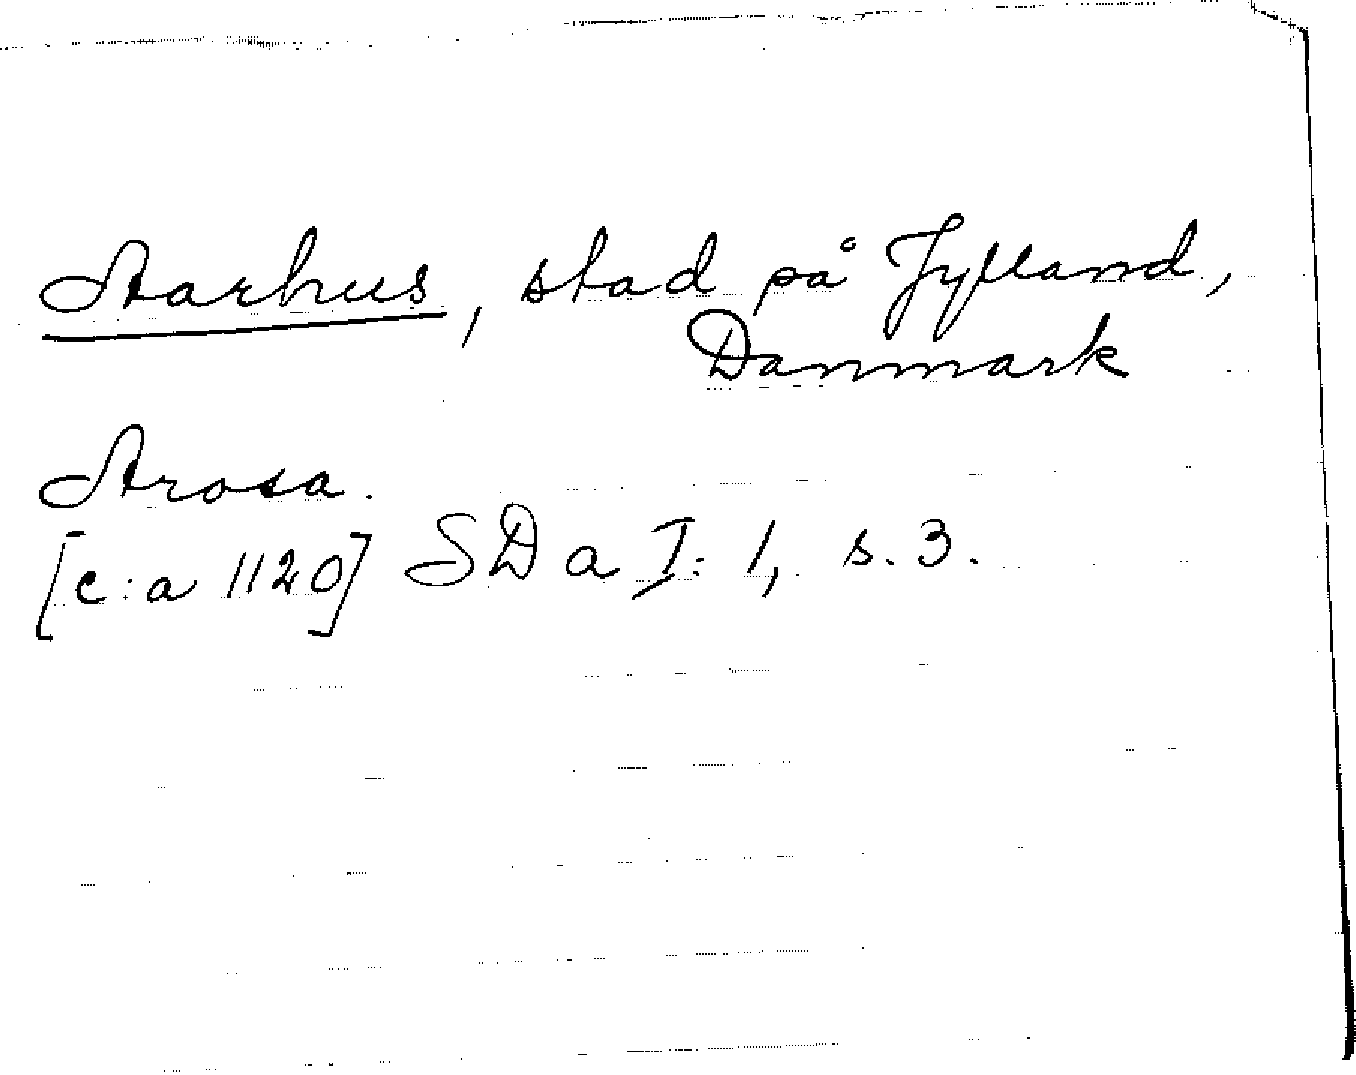 Aarhus, stad på Jylland,
Danmark
Arosa.
[c:a 1120] SD a I: 1, s. 3.